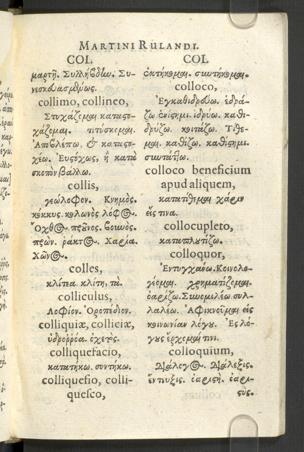 MARTINI RULANDI.
COL.
μαρτῆ. Συλλήβδην. Συ-
collimo, collineo,
Στοχάζομαι καταστ-
χάζομαι. τιτύσκομαι.
Ἀποβλέπω, & καταστ-
χέω. Εὐστχῶς, ἢ κατὰ
σκοπὸν βάλλω.
collis,
γεώλοφον. Κνημὸς.
κόκκυς. κολωνὸς λόφος.
Ὄχθος. πάγνος. βουνὸς.
πρών. Χαρία.
Χῶνος.
colles,
κλίτια. κλίτη, τὰ.
colliculus,
Λοφίον. Ὀροπέδιον.
colliquiæ, colliciæ,
ὑδρορρόα.
colliquefacio,
κατατήκω. συντήκω.
colliquefio, colli-
quesco,
COL.
ἐκτήκομαι. συντήκομαι.
colloco,
Ἐγκαθιδρύω. ἑδρά-
ζω ἐνίστημι. ἱδρύω. καθι-
δρύζω. κοιτάζω. Τίθε-
μαι. καθίζω. καθίστημι.
colloco beneficium
apud aliquem,
κατατίθεμαι χάριν
εἴς τινα.
collocupleto,
καταπλουτίζω.
colloquor,
Ἐντυγχάνω. Κοινολο-
γέομαι. χρηματίζομαι.
ὀαρίζω. Συνομιλέω συλ-
λαλέω. Ἀφικνοῦμαι εἰς
κοινωνίαν λόγου. Εἰς λό-
γους ἔρχομαί τινι.
colloquium,
Διάλογος. Διάλεξις.
ἔντευξις. ὀαρι-